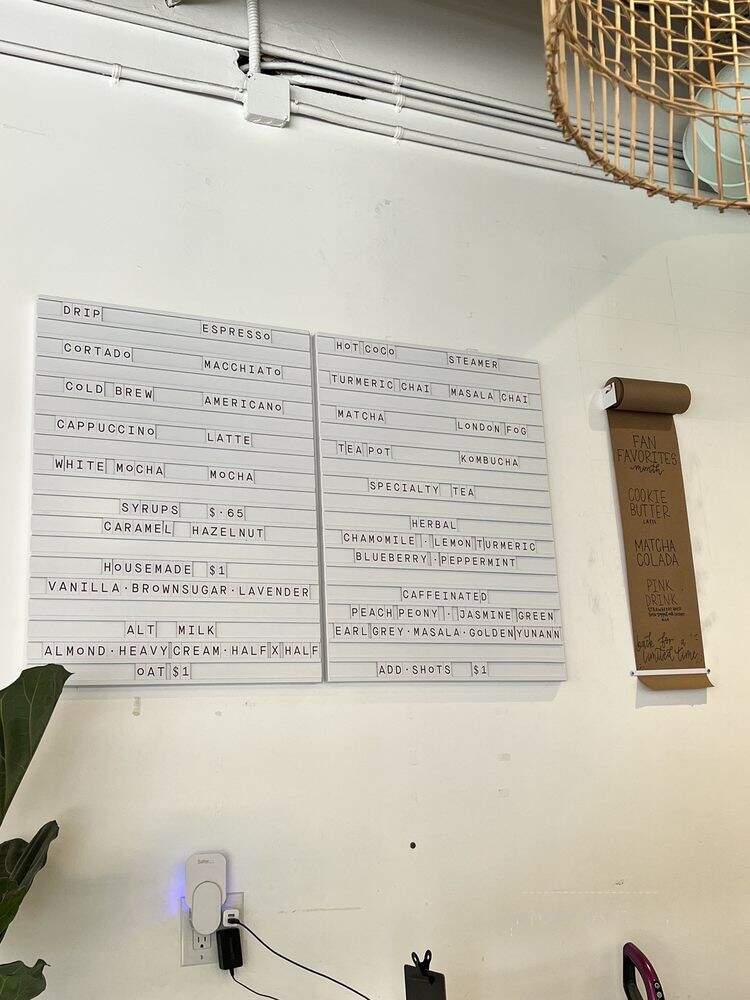 DRIP
ESPRESSO
CORTADO
MACCHIATO
COLD BREW
AMERICANO
CAPPUCCINO
LATTE
WHITE MOCHA
MOCHA
SYRUPS $.65
CARAMEL HAZELNUT
HOUSEMADE $1
VANILLA·BROWNSUGAR·LAVENDER
ALT MILK
ALMOND·HEAVY CREAM·HALF X HALF
OAT $1
HOT COCO
STEAMER
TURMERIC CHAI
MASALA CHAI
MATCHA
LONDON FOG
TEA POT
KOMBUCHA
SPECIALTY TEA
HERBAL
CHAMOMILE·LEMON TURMERIC
BLUEBERRY·PEPPERMINT
CAFFEINATED
PEACH PEONY·JASMINE GREEN
EARL GREY·MASALA·GOLDEN YUNANN
ADD·SHOTS $1
FAN
FAVORITES
month
COOKIE
BUTTER
LATTE
MATCHA
COLADA
PINK
DRINK
back for a
limited time